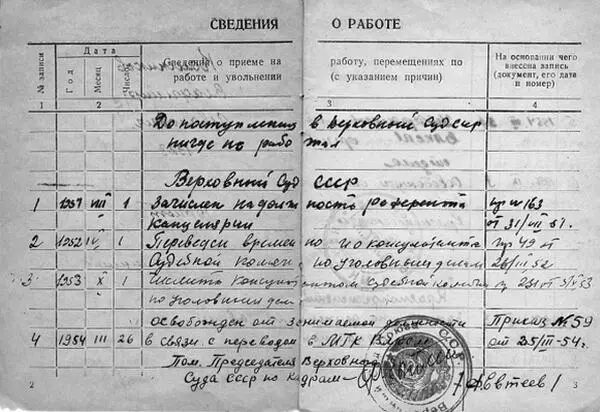 СВЕДЕНИЯ О РАБОТЕ
№ записи
Дата
Год
Месяц
Число
Сведения о приеме на работу, перемещениях по
работе и увольнении (с указанием причин)
На основании чего
внесена запись
(документ, его дата
и номер)
1 2 3 4
До поступления в Верховный Суд СССР
нигде не работал
Верховный Суд СССР
1 1951 VIII 1 Зачислен на должность референта пр № 163
Канцелярии от 31/VII 51.
2 1952 1 Переведен времен но и о консультанта пр 49 от
Судебной по уголовным делам 26/III 52
3 1953 X 1 Числить Консультантом Судебной
по уголовным делам
освобожден от занимаемой должности Приказ № 59
4 1954 III 26 в связи с переводом в МГК от 25/III-54г.
Пом. Председателя Верховного
Суда СССР по Кадрам - /Евтеев/
2 3